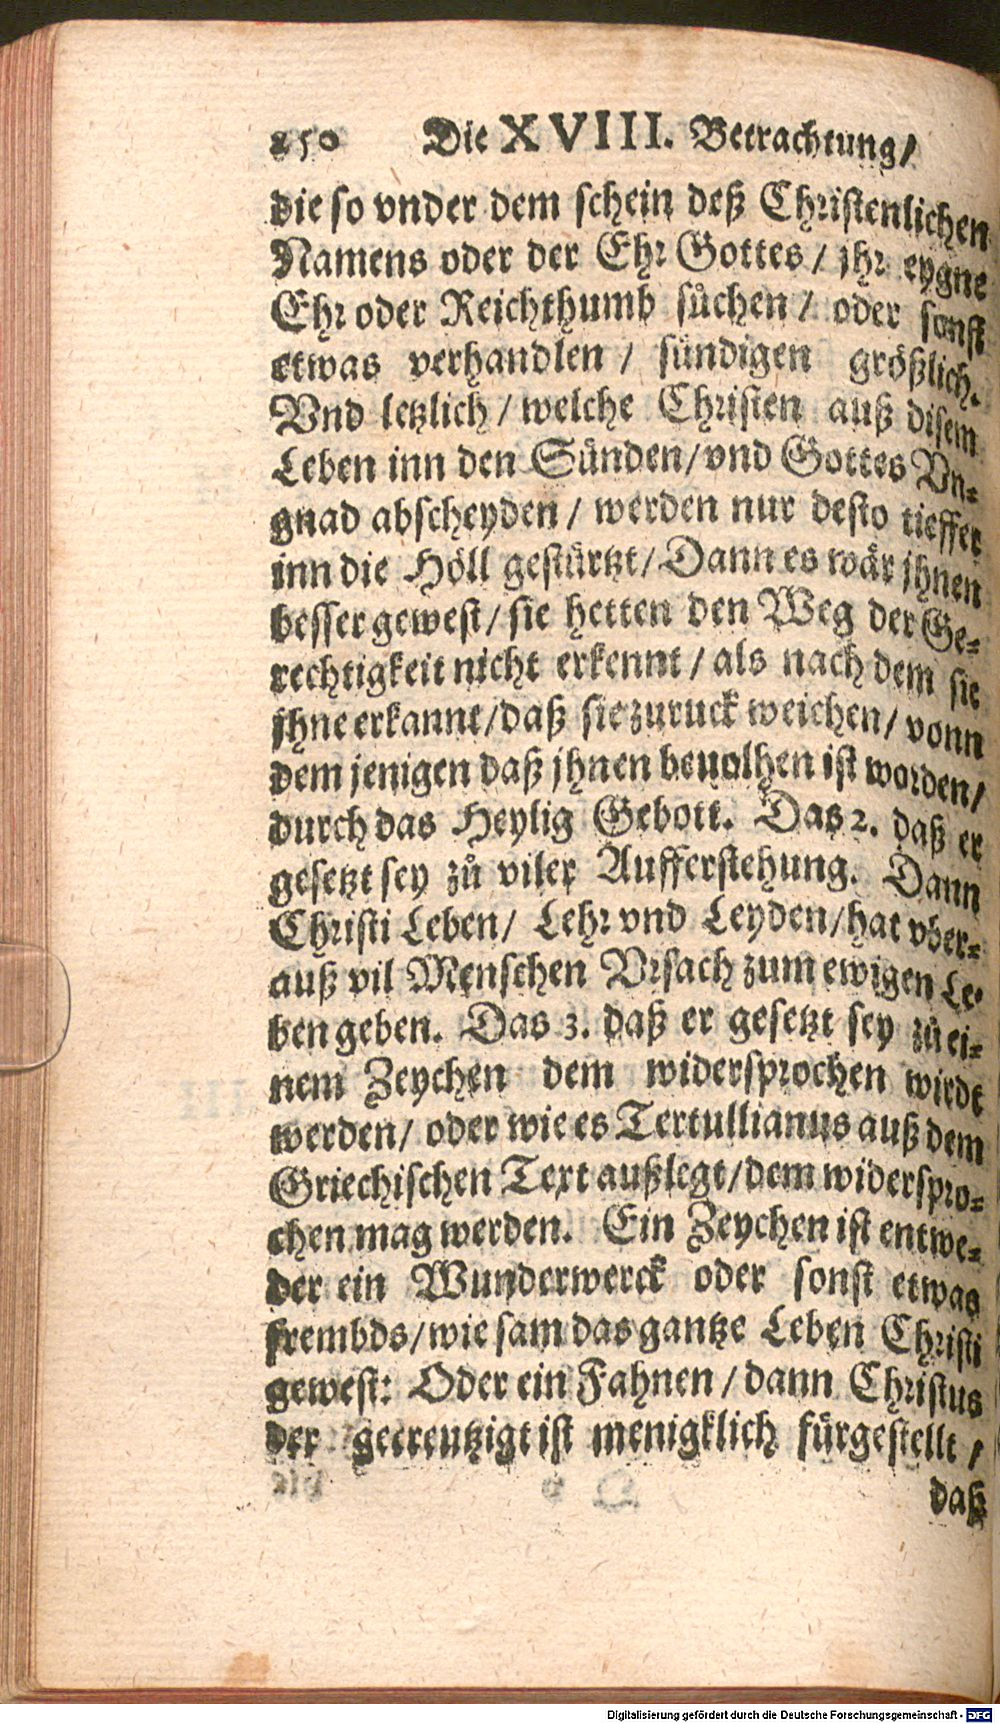 250 Die XVIII. Betrachtung/
die so vnder dem schein deß Christenlichen
Namens oder der Ehr Gottes / jhr eygne
Ehr oder Reichthumb sůchen / oder sonst
etwas verhandlen / sündigen größlich.
Vnd letzlich / welche Christen auß disem
Leben inn den Sünden/vnd Gottes Vn-
gnad abscheyden / werden nur desto tieffer
inn die Höll gestürtzt/ Dann es wär jhnen
besser gewest/ sie hetten den Weg der Ge-
rechtigkeit nicht erkennt / als nach dem sie
jhne erkannt/daß sie zuruck weichen/ vonn
dem jenigen daß jhnen beuolhen ist worden/
durch das Heylig Gebott. Das 2. daß er
gesetzt sey zů viler Aufferstehung. Dann
Christi Leben/ Lehr vnd Leyden/hat vber-
auß vil Menschen Vrsach zum ewigen Le-
ben geben. Das 3. daß er gesetzt sey zů ei-
nem Zeychen dem widersprochen wirdt
werden/ oder wie es Tertullianus auß dem
Griechischen Text außlegt/dem widerspro-
chen mag werden. Ein Zeychen ist entwe-
der ein Wunderwerck oder sonst etwas
frembds/wie sam das gantze Leben Christi
gewest: Oder ein Fahnen / dann Christus
der gecreutzigt ist menigklich fürgestellt /
daß
Digitalisierung gefördert durch die Deutsche Forschungsgemeinschaft - DFG